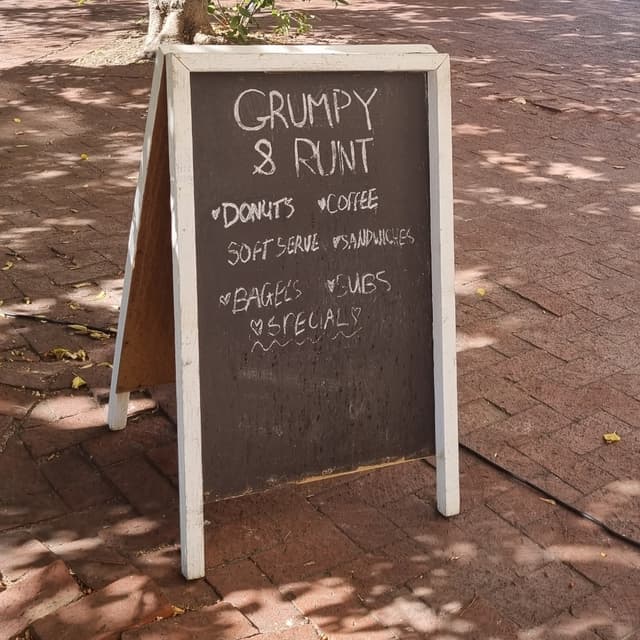 GRUMPY
& RUNT
♥DONUTS ♥COFFEE
SOFT SERVE ♥SANDWICHES
♥BAGELS ♥SUBS
♡SPECIAL♡